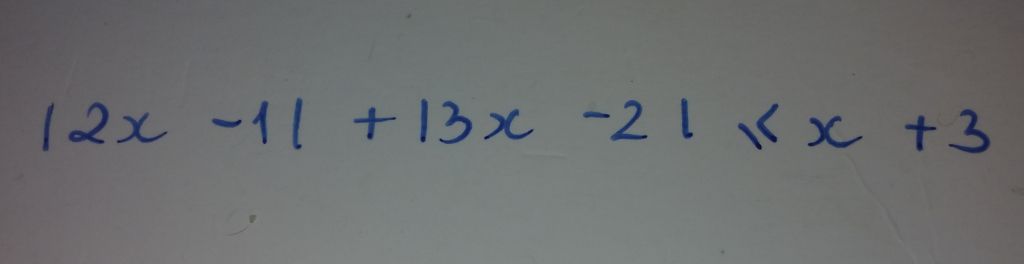 |2x - 1| + |3x - 2| ⩽ x + 3